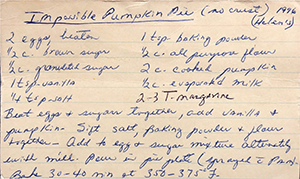 Impossible Pumpkin Pie (no crust) 1996
(Helen's)
2 eggs, beaten 1 tsp baking powder
½ c. brown sugar ½ c. all purpose flour
½ c. granulated sugar 2 c. cooked pumpkin
1 tsp. vanilla ½ c. evaporated milk
¼ tsp salt 2-3 T. margarine
Beat eggs & sugars together, add vanilla &
pumpkin- Sift salt, Baking powder & flour
together- Add to egg & sugar mixture alternately
with milk. Pour in pie plate (sprayed c Pam).
Bake 30-40 min at 350-375° F.